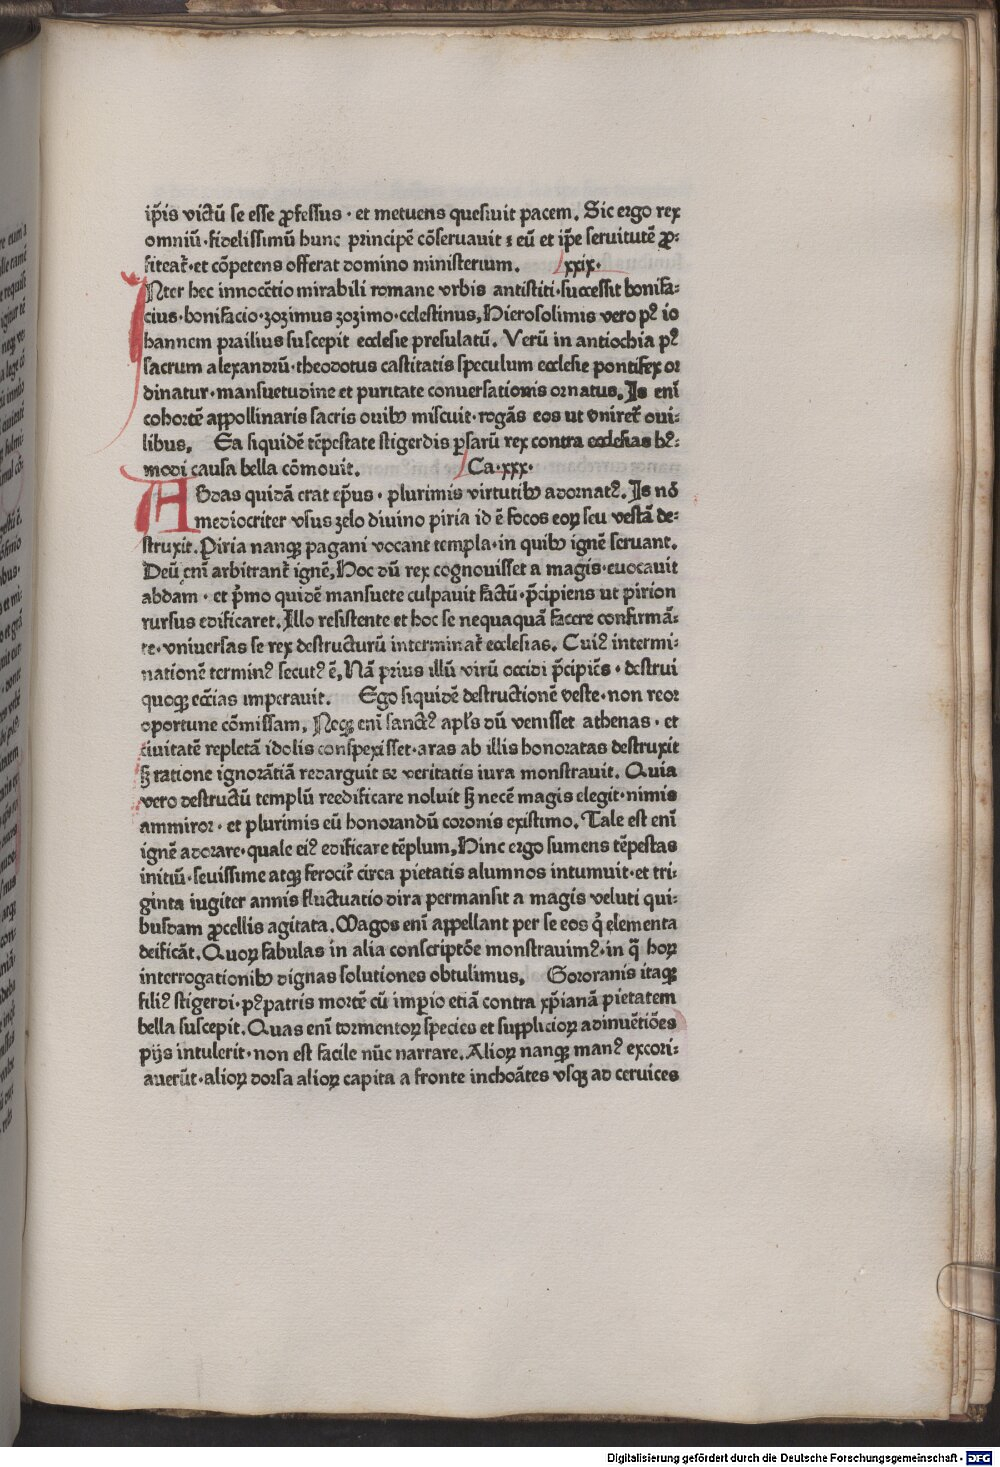 ip̄is victū se esse ꝓfessus · et metuens quesiuit pacem. Sic ergo rex
omniū · fidelissimū hunc principē cōseruauit ⁊ eū et ip̄e seruitutē ꝓ-
fiteat᷑ · et cōpetens offerat domino ministerium. xxix.
INter hec innocētio mirabili romane vrbis antistiti · successit bonifa-
cius · bonifacio · zozimus zozimo · celestinus, Hierosolimis vero pꝰ io
hannem prailius suscepit ecclesie presulatū. Verū in antiochia pꝰ
sacrum alexandrū · theodotus castitatis speculum ecclesie pontifex or
dinatur · mansuetudine et puritate conuersationis ornatus. Is enī
cohortē appollinaris sacris ouibꝫ miscuit · rogās eos ut vniret᷑ oui-
libus. Ea siquidē tēpestate stigerdis ꝑsarū rex contra ecclesias hꝰ-
modi causa bella cōmouit. Ca · xxx ·
ABdas quidā erat ep̄us · plurimis virtutibꝫ adornatꝰ. Is nō
mediocriter vsus zelo diuino piria id ē focos eoꝝ seu vestā de-
struxit. Piria nanqꝫ pagani vocant templa · in quibꝫ ignē seruant.
Deū enī arbitrant᷑ ignē, Hoc dū rex cognouisset a magis · euocauit
abdam · et p̄mo quidē mansuete culpauit factū · p̄cipiens ut pirion
rursus edificaret. Illo resistente et hoc se nequaquā facere confirmā-
te · vniuersas se rex destructurū interminat᷑ ecclesias. Cuiꝰ intermi-
nationē terminꝰ secutꝰ ē, Nā prius illū virū occidi p̄cipiēs · destrui
quoqꝫ ecc̄ias imperauit. Ego siquidē destructionē veste · non reor
oportune cōmissam. Neqꝫ enī sanctꝰ apl's dū venisset athenas · et
ciuitatē repletā idolis conspexisset · aras ab illis honoratas destruxit
sꝫ ratione ignorātiā redarguit ⁊ veritatis iura monstrauit. Quia
vero destructū templū reedificare noluit sꝫ necē magis elegit · nimis
ammiror · et plurimis eū honorandū coronis existimo. Tale est enī
ignē adorare · quale eiꝰ edificare tēplum, Hinc ergo sumens tēpestas
initiū · seuissime atqꝫ ferocit᷑ circa pietatis alumnos intumuit · et tri-
ginta iugiter annis fluctuatio dira permansit a magis veluti qui-
busdam ꝓcellis agitata. Magos enī appellant per se eos q̄ elementa
deificāt. Quoꝝ fabulas in alia conscriptōe monstrauimꝰ · in q̄ hoꝝ
interrogationibꝫ dignas solutiones obtulimus. Gororanis itaqꝫ
filiꝰ stigerdi · pꝰ patris mortē cū impio etiā contra xp̄ianā pietatem
bella suscepit. Quas enī tormentoꝝ species et supplicioꝝ adinuētiōes
pijs intulerit · non est facile nūc narrare. Alioꝝ nanqꝫ manꝰ excori-
auerūt · alioꝝ dorsa alioꝝ capita a fronte inchoātes vsqꝫ ad ceruices
Digitalisierung gefördert durch die Deutsche Forschungsgemeinschaft · DFG